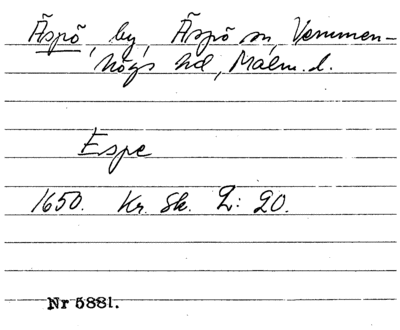 Äspö, by, Äspö sn, Vemmen-
högs hd, Malm. l.
Espe
1650. Kr. Sk. L: 20.
Nr 5881.